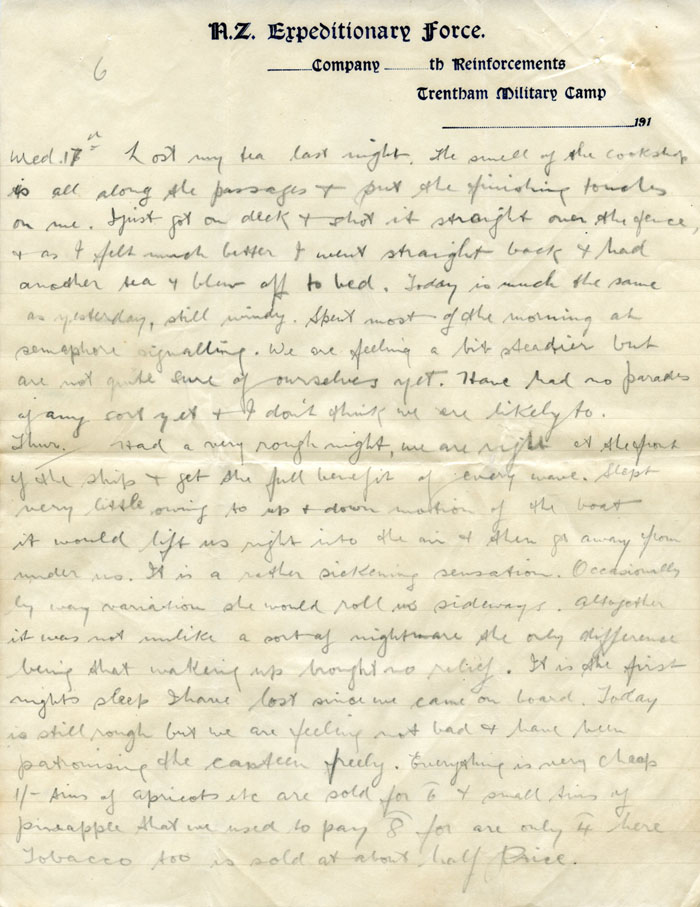 N.Z. Expeditionary Force.
Company th Reinforcements
Trentham Military Camp
191
6
Wed. 17th Lost my tea last night. The smell of the cookshop
is all along the passages & put the finishing touches
on me. I just got on deck & shot it straight over the fence,
& as I felt much better I went straight back & had
another tea & blew off to bed. Today is much the same
as yesterday, still windy. Spent most of the morning at
semaphore signalling. We are feeling a bit steadier but
are not quite sure of ourselves yet. Have had no parades
of any sort yet & I don't think we are likely to.
Thur. Had a very rough night, we are right at the front
of the ship & get the full benefit of every wave. Slept
very little owing to up & down motion of the boat
it would lift us right into the air & then go away from
under us. It is a rather sickening sensation. Occasionally
by way variation she would roll us sideways. Altogether
it was not unlike a sort of nightmare the only difference
being that waking up brought no relief. It is the first
nights sleep I have lost since we came on board. Today
is still rough but we are feeling not bad & have been
patronising the canteen freely. Everything is very cheap
1/- tins of apricots etc are sold for 6 & small tins of
pineapple that we used to pay 8 for are only 4 here
Tobacco too is sold at about half Price.